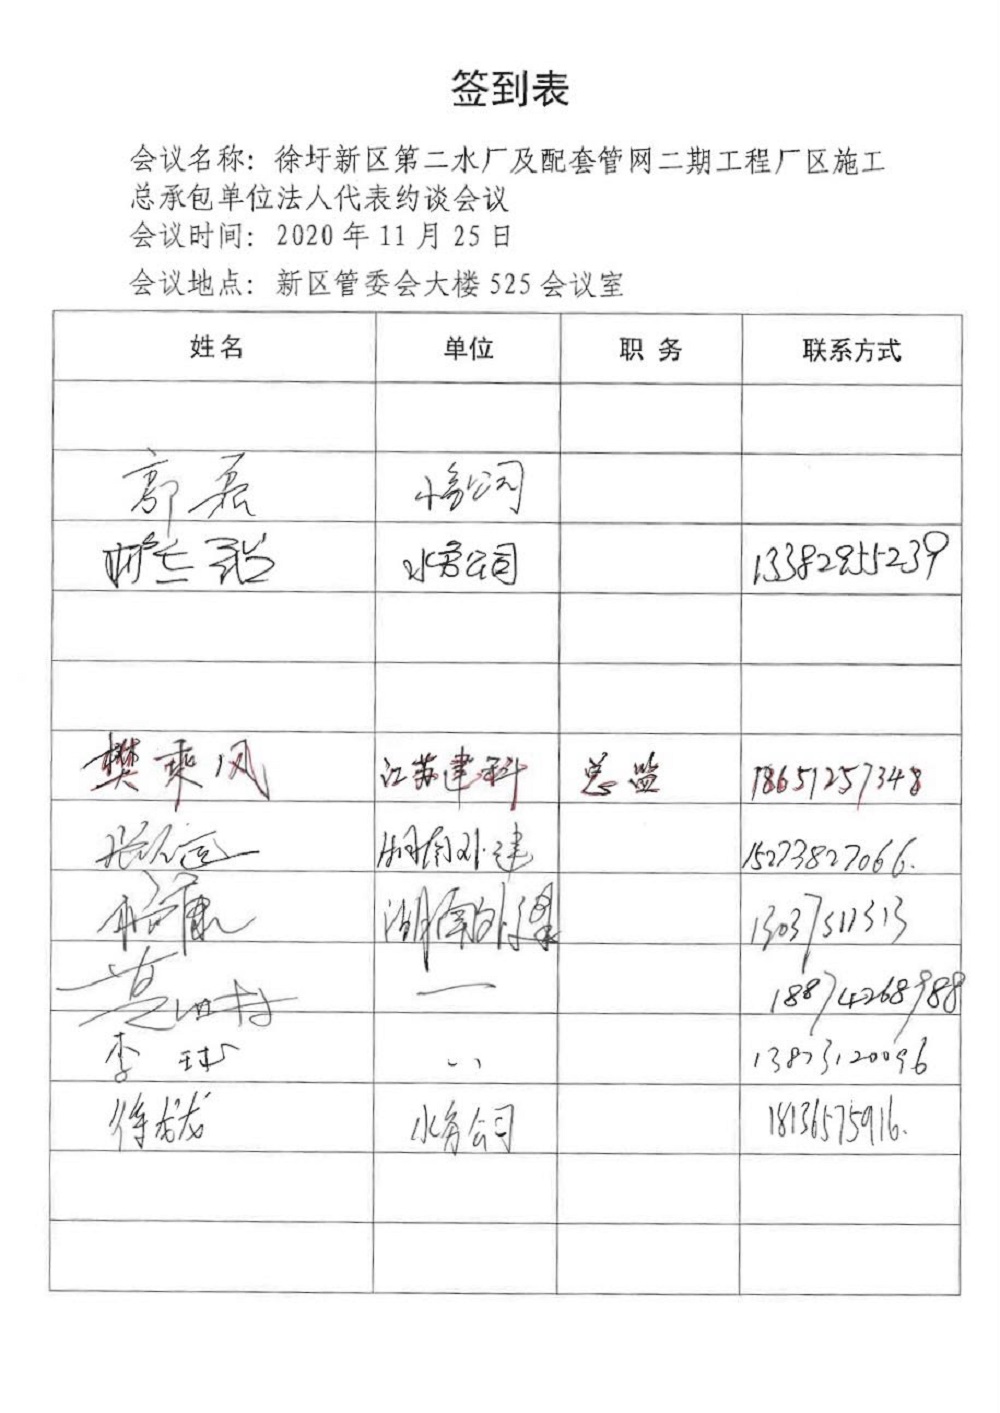 签到表
会议名称：徐圩新区第二水厂及配套管网二期工程厂区施工
总承包单位法人代表约谈会议
会议时间：2020年11月25日
会议地点：新区管委会大楼525会议室
姓名 单位 职 务 联系方式
郭磊 水务公司
水务公司 13382955239
樊乘风 江苏建科 总监 18651257348
湖南外建 15273827066.
湖南外建 13037511313
一 18874268988
李球 、、 13873120096
徐龙 水务公司 18136575916.